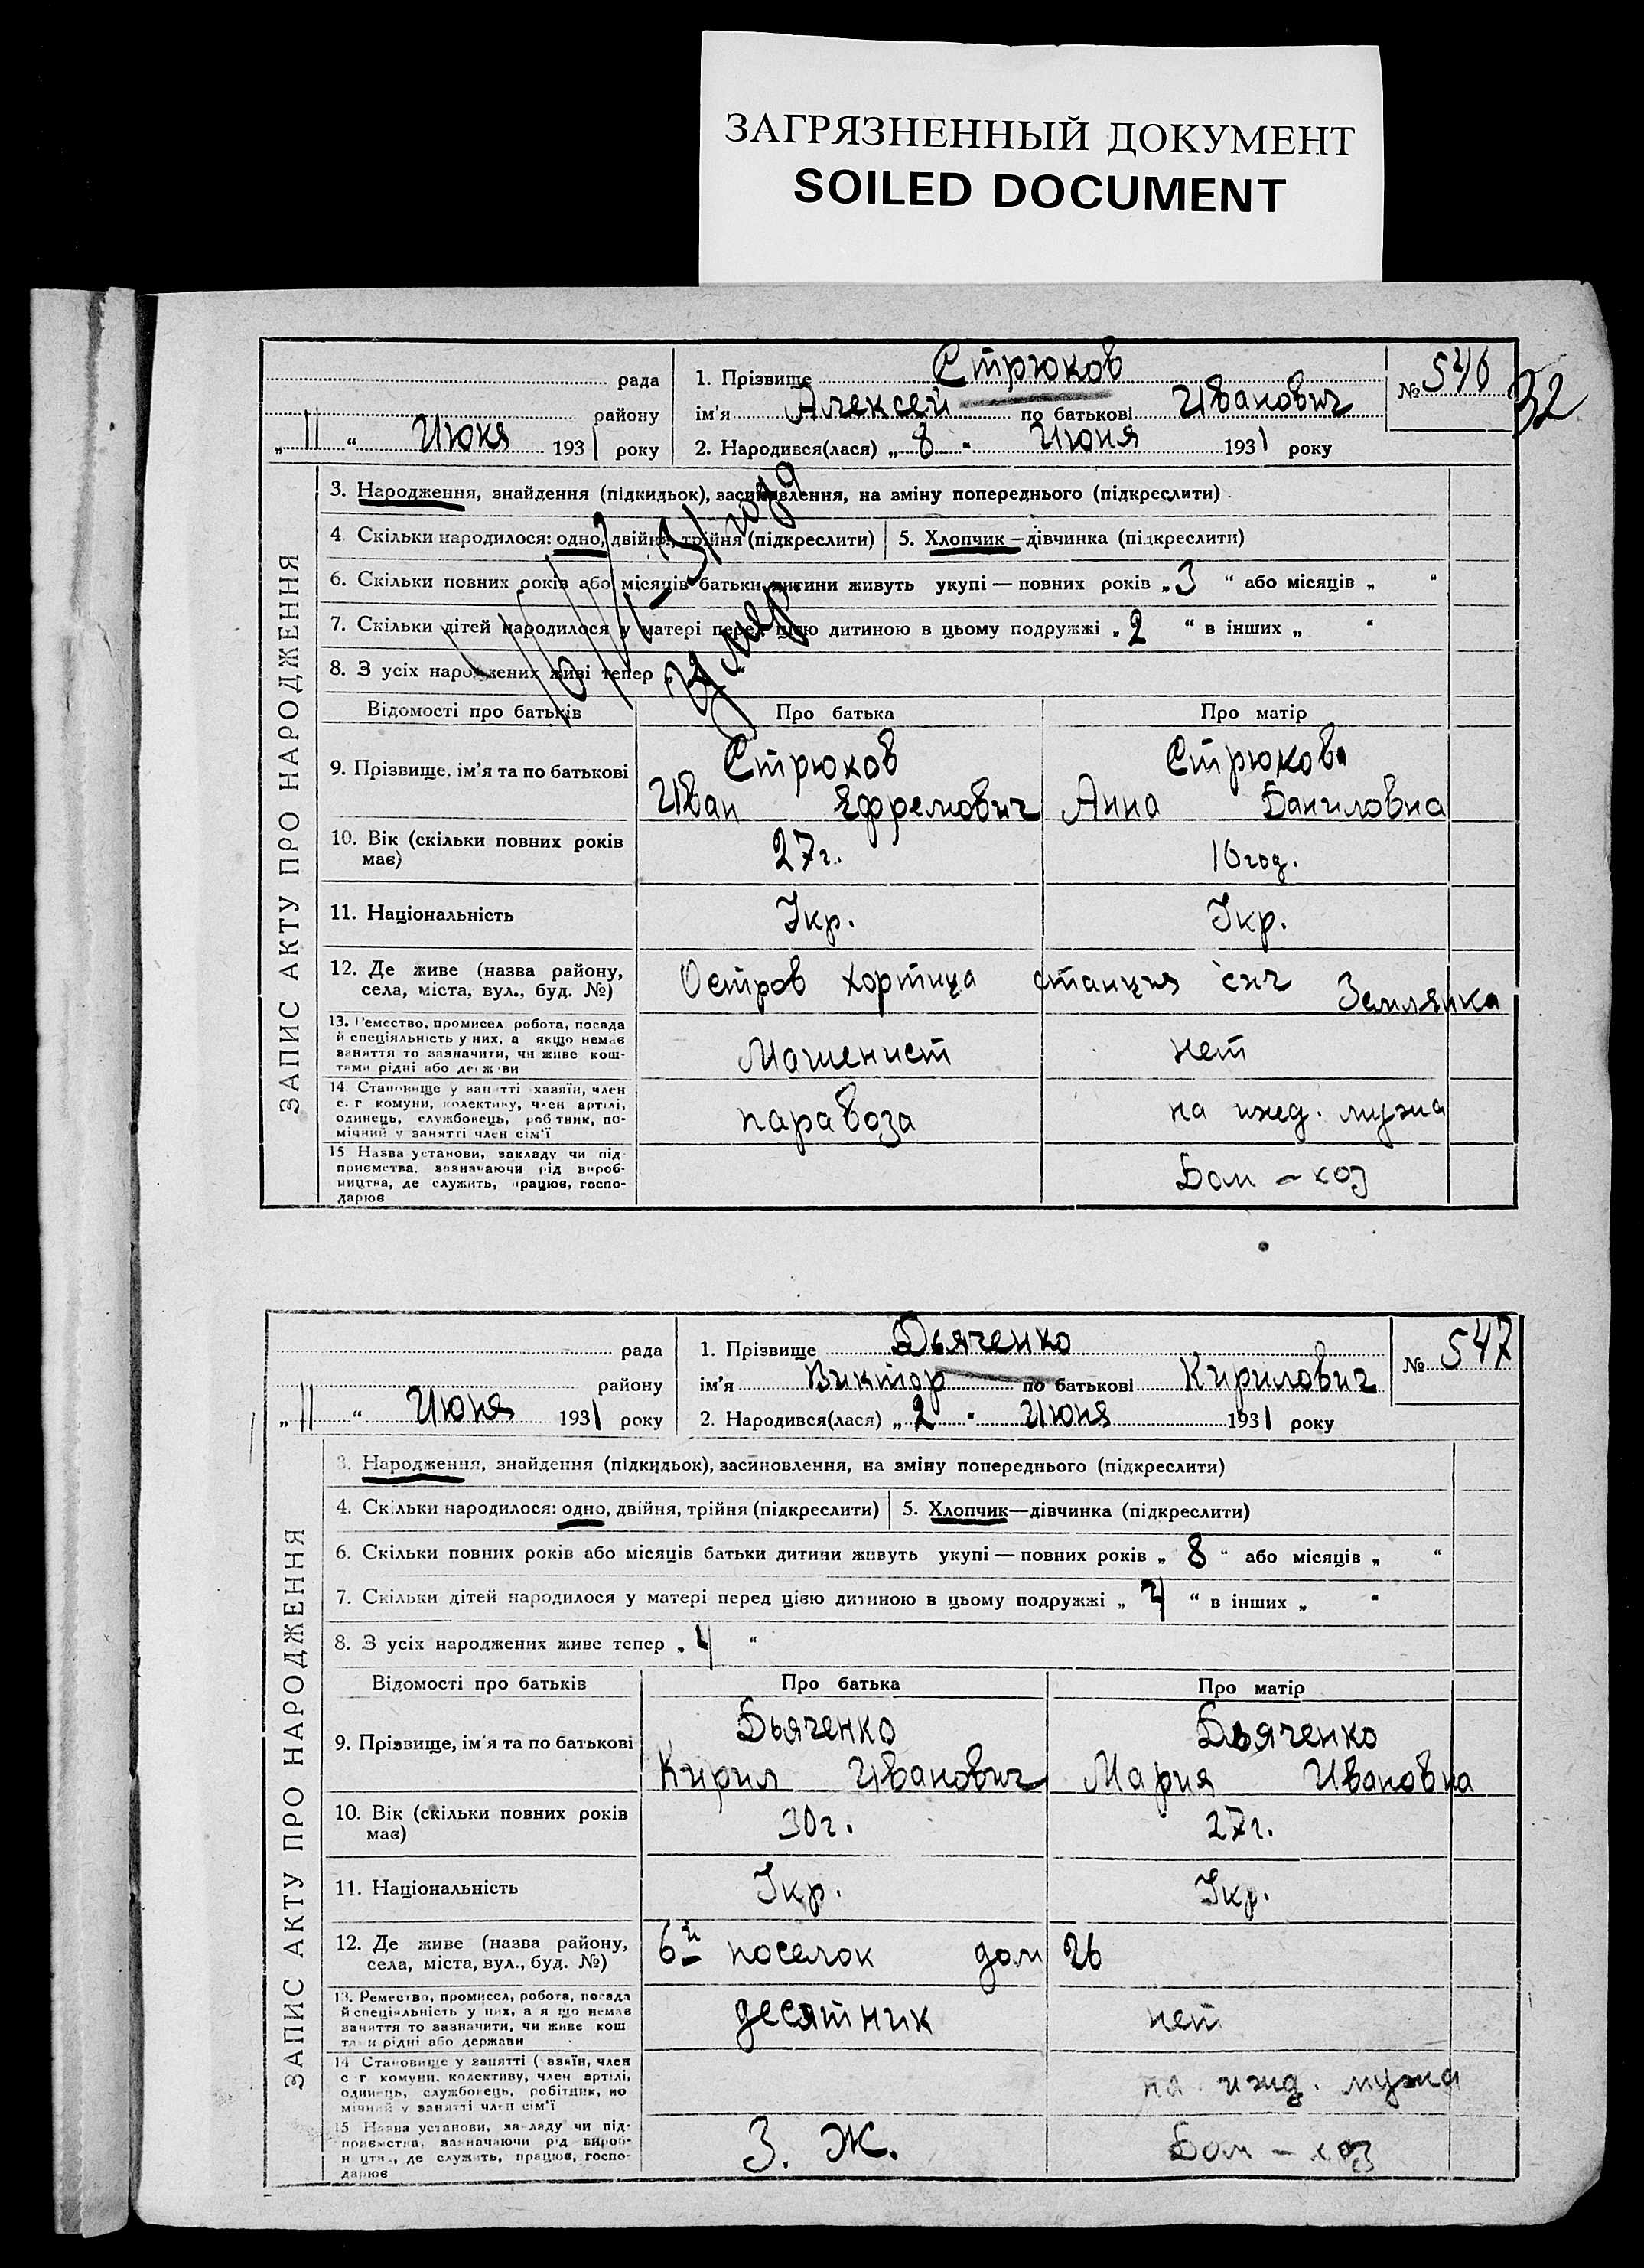 ЗАГРЯЗНЕННЫЙ ДОКУМЕНТ
SOILED DOCUMENT
32
ЗАПИС АКТУ ПРО НАРОДЖЕННЯ
рада
району
„ 11 “ Июня 1931 року
1. Прізвище Стрюков
ім'я Алексей по батькові Иванович
2. Народився(лася) „ 8 “ Июня 1931 року
№ 546
3. Народження, знайдення (підкидьок), засиновлення, на зміну попереднього (підкреслити)
4. Скільки народилося: одно, двійня, трійня (підкреслити) 5. Хлопчик—дівчинка (підкреслити)
6. Скільки повних років або місяців батьки дитини живуть укупі — повних років „ 3 “ або місяців „ “
7. Скільки дітей народилося у матері перед цією дитиною в цьому подружжі „ 2 “ в інших „ “
8. З усіх народжених живі тепер „
31 года
умер
Відомості про батьків Про батька Про матір
9. Прізвище, ім'я та по батькові
Стрюков Стрюкова
Иван Ефремович Анна Даниловна
10. Вік (скільки повних років має) 27 г. 16 год.
11. Національність Укр. Укр.
12. Де живе (назва району, села, міста, вул., буд. №) Остров Хортица станция сич Землянка
13. Ремество, промисел робота, посада
й спеціяльність у них, а якщо немає
заняття то зазначити, чи живе кош-
тами рідні або держави
Машенист нет
14. Становище у занятті хазяїн, член
с. г комуни, колективу, член артілі,
одинець, службовець, робітник, по-
мічний у занятті член сім'ї
паравоза на ижд. мужа
15 Назва установи, закладу чи під-
приємства, зазначаючи рід вироб-
ництва, де служить, працює, госпо-
дарює
Дом - хоз
ЗАПИС АКТУ ПРО НАРОДЖЕННЯ
рада
району
„ 11 “ Июня 1931 року
1. Прізвище Дьяченко
ім'я Виктор по батькові Кирилович
2. Народився(лася) „ 2 “ Июня 1931 року
№ 547
3. Народження, знайдення (підкидьок), засиновлення, на зміну попереднього (підкреслити)
4. Скільки народилося: одно, двійня, трійня (підкреслити) 5. Хлопчик—дівчинка (підкреслити)
6. Скільки повних років або місяців батьки дитини живуть укупі — повних років „ 8 “ або місяців „ “
7. Скільки дітей народилося у матері перед цією дитиною в цьому подружжі „ 4 “ в інших „ “
8. З усіх народжених живе тепер „ 4 “
Відомості про батьків Про батька Про матір
9. Прізвище, ім'я та по батькові
Дьяченко Дьяченко
Кирил Иванович Мария Ивановна
10. Вік (скільки повних років має) 30 г. 27 г.
11. Національність Укр. Укр.
12. Де живе (назва району, села, міста, вул., буд. №) 6й поселок дом 26
13. Ремество, промисел, робота, посада
й спеціяльність у них, а якщо немає
заняття то зазначити, чи живе кош
тами рідні або держави
десятник нет
14 Становище у занятті (хазяїн, член
с г комуни, колективу, член артілі,
одинець, службовець, робітник, по
мічний у занятті член сім'ї
на ижд. мужа
15 Назва установи, закладу чи під-
приємства, зазначаючи рід вироб-
ництва, де служить, працює, госпо-
дарює
З. Ж. Дом - хоз